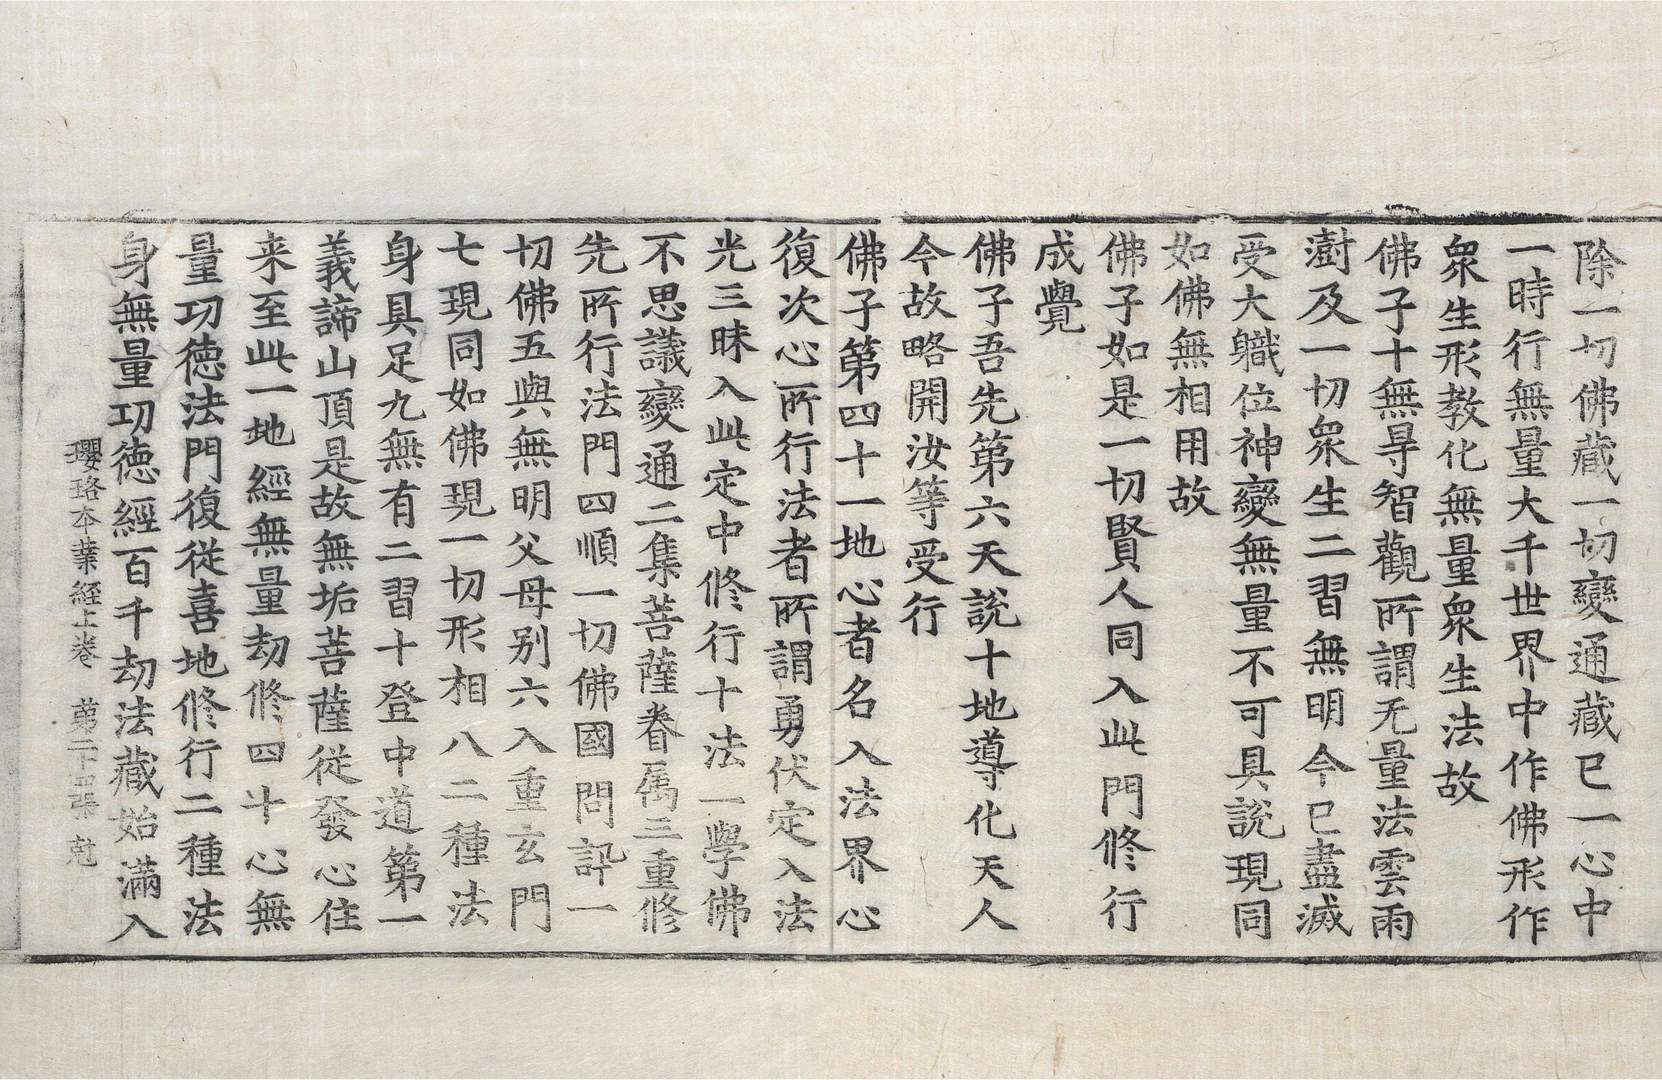 除一切佛藏一切變通藏已一心中
一時行無量大千世界中作佛形作
衆生形教化無量衆生法故
佛子十無㝵智觀所謂无量法雲雨
澍及一切衆生二習無明今已盡滅
受大職位神變無量不可具說現同
如佛無相用故
佛子如是一切賢人同入此門修行
成覺
佛子吾先第六天說十地導化天人
今故略開汝等受行
佛子第四十一地心者名入法界心
復次心所行法者所謂勇伏定入法
光三昧入此定中修行十法一學佛
不思議變通二集菩薩眷属三重修
先所行法門四順一切佛國問訊一
切佛五與無明父母别六入重玄門
七現同如佛現一切形相八二種法
身具足九無有二習十登中道第一
義諦山頂是故無垢菩薩從發心住
来至此一地經無量劫修四十心無
量功德法門復從喜地修行二種法
身無量功德經百千劫法藏始滿入
瓔珞本業經上卷 第二十四張